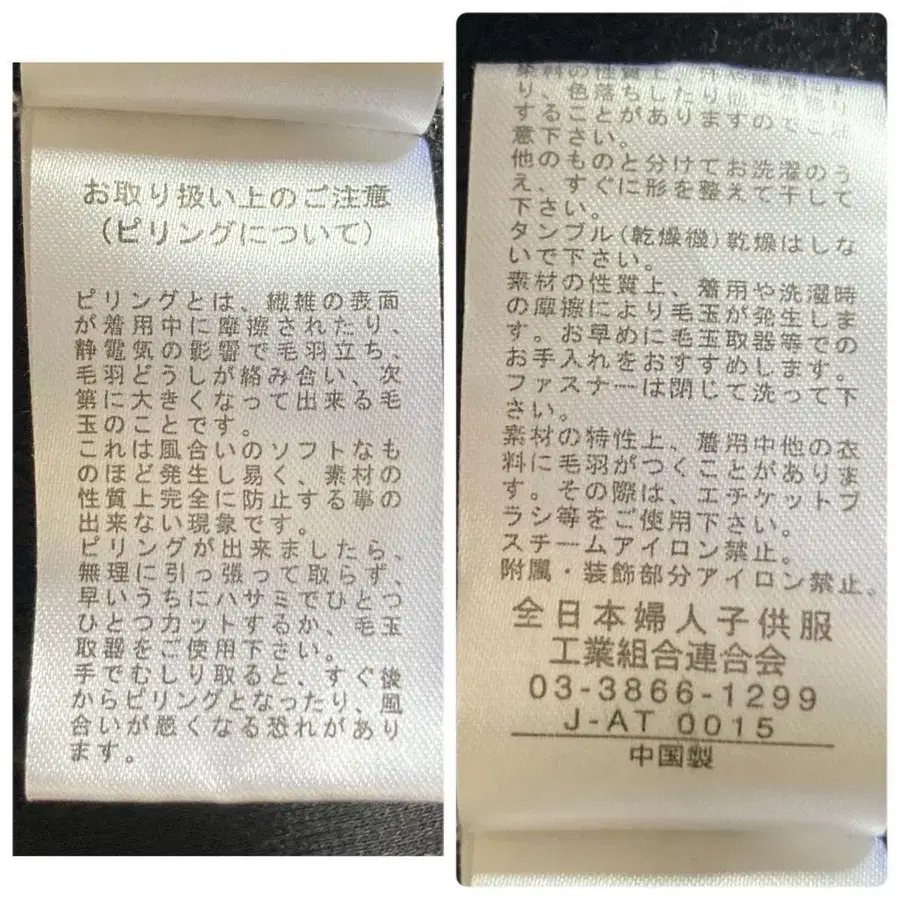 お取り扱い上のご注意
（ピリングについて）
ピリングとは、繊維の表面
が着用中に摩擦されたり、
静電気の影響で毛羽立ち、
毛羽どうしが絡み合い、次
第に大きくなって出来る毛
玉のことです。
これは風合いのソフトなも
のほど発生し易く、素材の
性質上完全に防止する事の
出来ない現象です。
ピリングが出来ましたら、
無理に引っ張って取らず、
早いうちにハサミでひとつ
ひとつカットするか、毛玉
取器をご使用下さい。
手でむしり取ると、すぐ後
からピリングとなったり、風
合いが悪くなる恐れがあり
ます。
り、色落ちしたり他に移
することがありますのでご注
意下さい。
他のものと分けてお洗濯のう
え、すぐに形を整えて干して
下さい。
タンブル(乾燥機)乾燥はしな
いで下さい。
素材の性質上、着用や洗濯時
の摩擦により毛玉が発生しま
す。お早めに毛玉取器等での
お手入れをおすすめします。
ファスナーは閉じて洗って下
さい。
素材の特性上、着用中他の衣
料に毛羽がつくことがありま
す。その際は、エチケットブ
ラシ等をご使用下さい。
スチームアイロン禁止。
附属・装飾部分アイロン禁止。
全日本婦人子供服
工業組合連合会
03-3866-1299
J-AT 0015
中国製